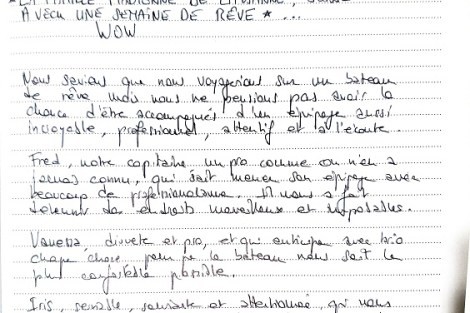 LA FAMILLE DE LAUSANNE,
A VÉCU UNE SEMAINE DE RÊVE * ...
WOW
Nous savions que nous voyagerions sur un bateau
de rêve mais nous ne pensions pas avoir la
chance d'être accompagnés d'un équipage aussi
incroyable, professionnel, attentif et à l'écoute.
Fred, notre capitaine un pro comme on n'en a
jamais connu, qui sait mener son équipage avec
beaucoup de professionnalisme. Il nous a fait
des endroits merveilleux et
Vanessa, discrète et pro, et qui anticipe avec brio
chaque chose pour que le bateau nous soit le
plus confortable possible.
Iris, sensible, souriante et attentionnée, qui nous